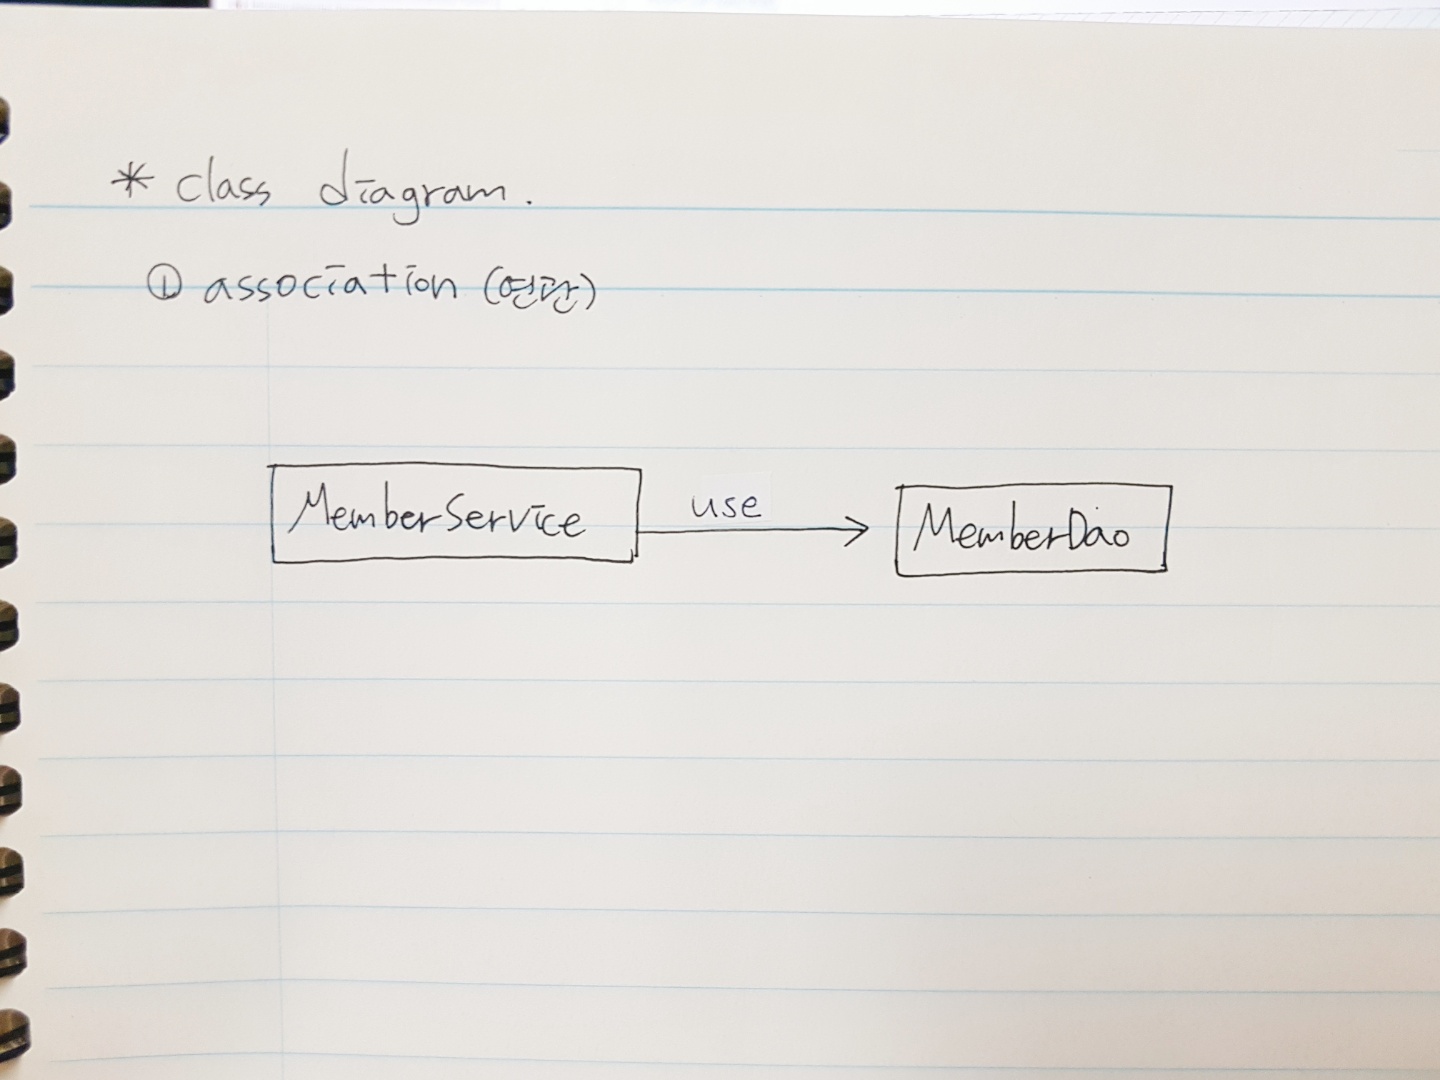 * class diagram.
① association (연관)
MemberService use MemberDao